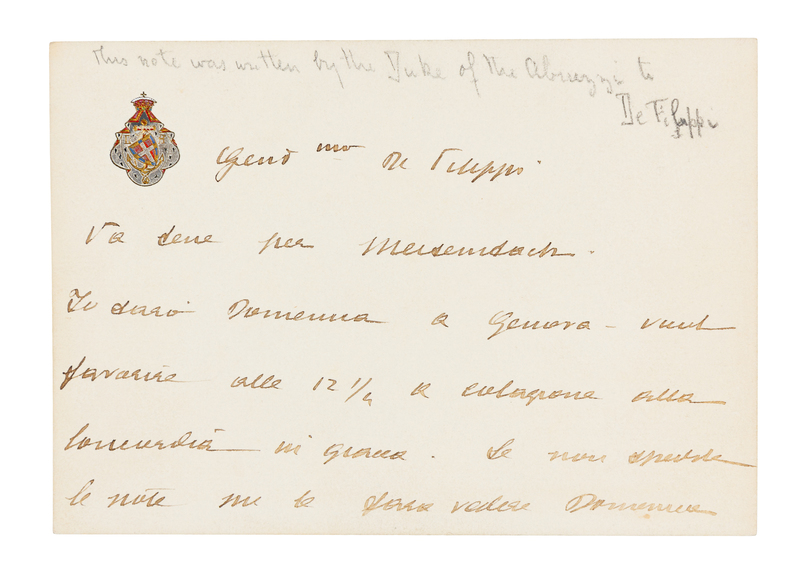 This note was written by the Duke of the Abruzzi to
De Filippi
Gentmo De Filippi
Va bene per Meisenbach.
Io sarò Domenica a Genova - vuol
favorire alle 12 1/2 a colazione alla
Concordia in piazza. Se non spedite
le note me le farà vedere Domenica